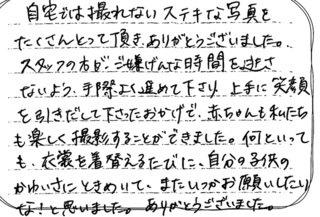 自宅では撮れないステキな写真を
たくさんとって頂き、ありがとうございました。
スタッフの方がご嫌げんな時間を逃さ
ないよう、手際よく進めて下さり、上手に笑顔
を引きだして下さったおかげで、赤ちゃんも私たち
も楽しく撮影することができました。何といって
も、衣装を着替えるたびに、自分の子供の
かゆいさにときめいて、またいつかお願いしたい
な！と思いました。ありがとうございました。